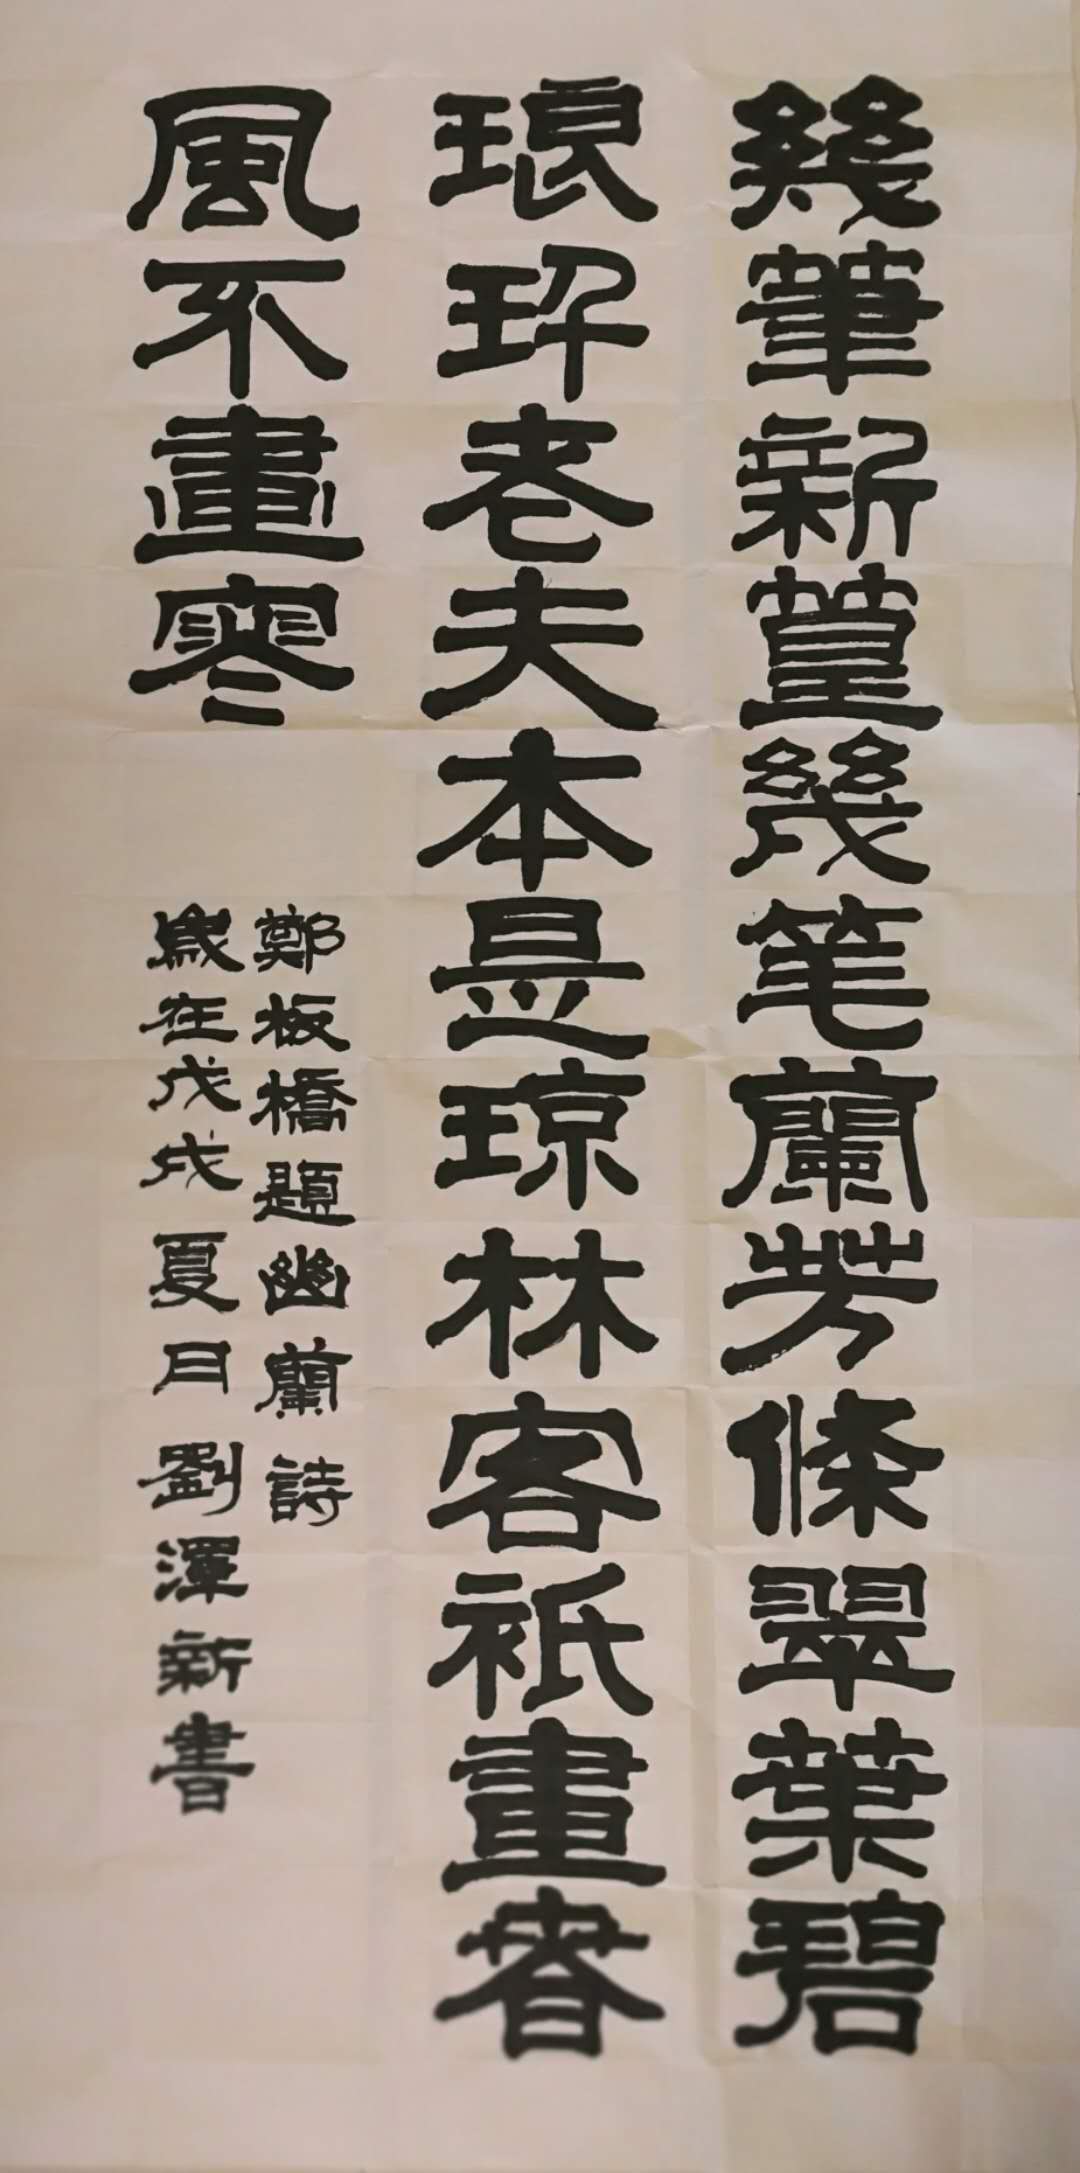 幾筆新篁幾笔蘭芳條翠葉碧
琅玕老夫本是琼林客衹畫春
風不畫寒
鄭板橋題幽蘭詩
歲在戊戌夏日劉渾新書